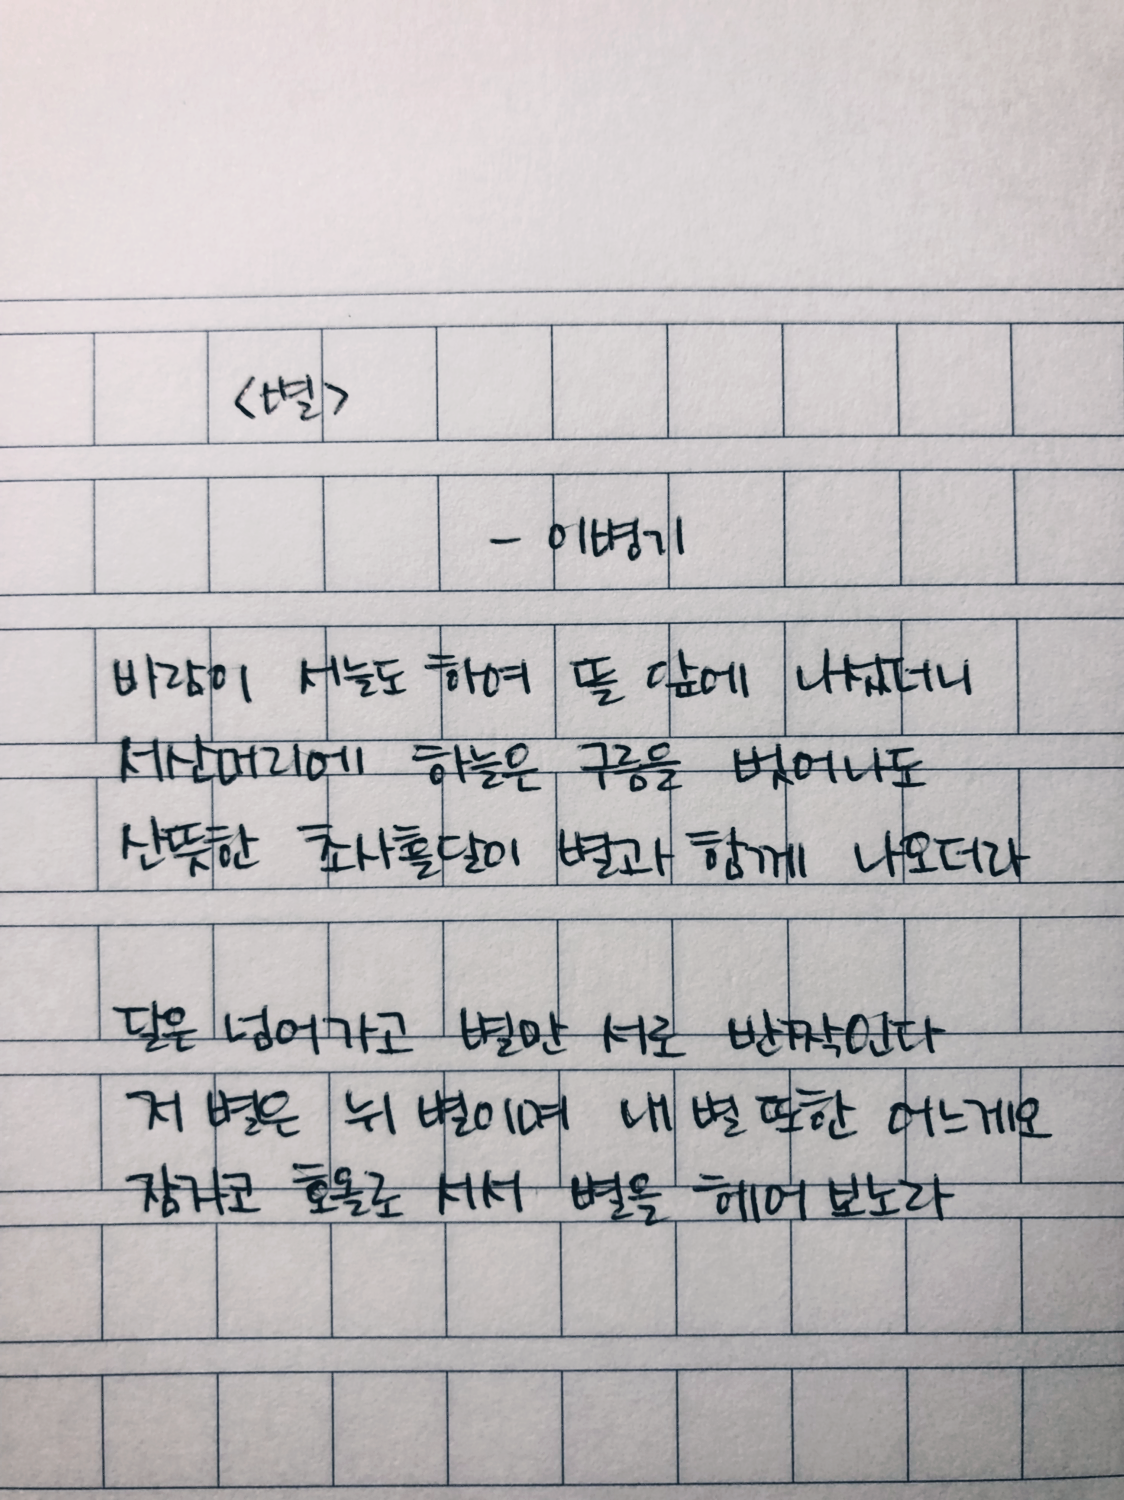 <별>
- 이병기
바람이 서늘도 하여 뜰 앞에 나섰더니
서산머리에 하늘은 구름을 벗어나도
산뜻한 초사흘달이 별과 함께 나오더라
달은 넘어가고 별만 서로 반짝인다
저 별은 뉘 별이며 내 별 또한 어느게오
잠자코 호올로 서서 별을 헤어 보노라